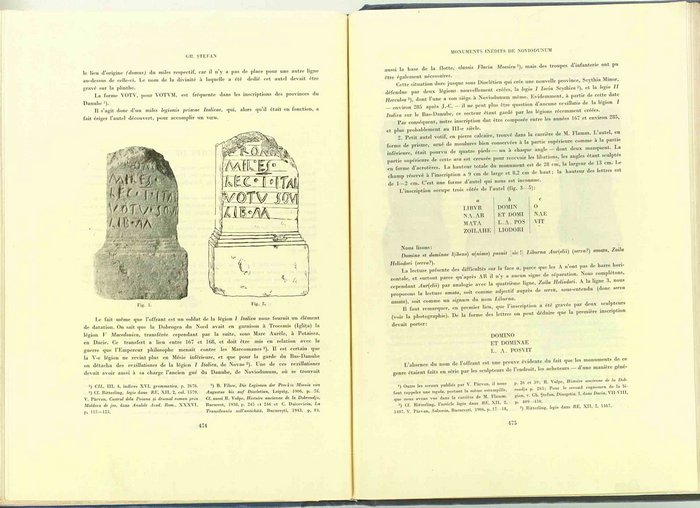 GH. ȘTEFAN
le lieu d'origine (domus) du miles respectif, car il n'y a pas de place pour une autre ligne
au-dessus de celle-ci. Le nom de la divinité à laquelle a été dédié cet autel devait être
gravé sur la plinthe.
La forme VOTV, pour VOTVM, est fréquente dans les inscriptions des provinces du
Danube ¹).
Il s'agit donc d'un miles legionis primae Italicae, qui, alors qu'il était en fonction, a
fait ériger l'autel découvert, pour accomplir un vœu.
MILES
LEC·I·ITA
VOTV·SOV
LIB·M
RO
MILES·
LEC·I·ITAL
VOTU SOVI
LIB·M
Fig. 1.
Fig. 2.
Le fait même que l'offrant est un soldat de la légion I Italica nous fournit un élément
de datation. On sait que la Dobrogea du Nord avait en garnison à Troesmis (Iglița) la
légion V Macedonica, transférée cependant par la suite, sous Marc Aurèle, à Potaissa,
en Dacie. Ce transfert a lieu entre 167 et 168, et doit être mis en relation avec le
guerre que l'Empereur philosophe menait contre les Marcomans ²). Il est certain que
la V-e légion ne revint plus en Mésie inférieure, et que pour la garde du Bas-Danube
on détacha des vexillations de la légion I Italica, de Novae ³). Une de ces vexillations
devait avoir aussi à sa charge l'ancien gué du Danube, de Noviodunum, où se trouvait
¹) CIL, III, 4, indices XVI, grammatica, p. 2676.
²) Cf. Ritterling, legio dans RE, XII, 2, col. 1579.
V. Pârvan, Castrul dela Poiana și drumul roman prin
Moldova de jos, dans Analele Acad. Rom., XXXVI,
p. 113—123.
³) B. Filow, Die Legionen der Provinz Moesia von
Augustus bis auf Diocletian, Leipzig, 1906, p. 76.
Cf. aussi R. Vulpe, Histoire ancienne de la Dobroudja,
Bucarest, 1938, p. 245 et 246 et C. Daicoviciu, La
Transilvania nell'antichità, București, 1943, p. 84.
474
MONUMENTS INÉDITS DE NOVIODUNUM
aussi la base de la flotte, classis Flavia Moesica ¹), mais des troupes d'infanterie ont pu
être également nécessaires.
Cette situation dure jusque sous Dioclétien qui crée une nouvelle province, Scythia Minor,
défendue par deux légions nouvellement créées, la legio I Iovia Scythica ²), et la legio II
Herculea ³), dont l'une a son siège à Noviodunum même. Evidemment, à partir de cette date
— environ 285 après J.-C. — il ne peut plus être question d'aucune vexillatio de la légion I
Italica sur le Bas-Danube, ce secteur étant gardé par les légions récemment créées.
Par conséquent, notre inscription dut être composée entre les années 167 et environ 285,
et plus probablement au III-e siècle.
2. Petit autel votif, en pierre calcaire, trouvé dans la carrière de M. Flamm. L'autel, en
forme de prisme, orné de moulures bien conservées à la partie supérieure comme à la partie
inférieure, était pourvu de quatre pieds — un à chaque angle — dont deux manquent. La
partie supérieure de cette ara est creusée pour recevoir les libations, les angles étant sculptés
en forme d'acrotères. La hauteur totale du monument est de 28 cm, la largeur de 13 cm. Le
champ réservé à l'inscription a 9 cm de large et 8,2 de haut: la hauteur des lettres est
de 1—2 cm. C'est une forme d'autel qui nous est inconnue.
L'inscription occupe trois côtés de l'autel (fig. 3—5):
a b c
LIBVR DOMIN O
NA.AR ET DOMI NAE
MATA L. A. POS VIT
ZOILAHE LIODORI
Nous lisons:
Domino et dominae l(ibens) a(nimo) posuit [sic!] Liburna Aur(elii) (serva?) amata, Zoila
Heliodori (serva?).
La lecture présente des difficultés sur la face a, parce que les A n'ont pas de barre hori-
zontale, et surtout parce qu'après AR il n'y a aucun signe de séparation. Nous complétons,
cependant Aur(elii) par analogie avec la quatrième ligne, Zoila Heliodori. A la ligne 3, nous
proposons la lecture amata, soit comme adjectif auprès de serva, sous-entendu (donc serva
amata), soit comme un signum du nom Liburna.
Il faut remarquer, en premier lieu, que l'inscription a été gravée par deux sculpteurs
(voir la photographie). De la forme des lettres on peut déduire que la première inscription
devait porter:
DOMINO
ET DOMINAE
L. A. POSVIT
L'absence du nom de l'offrant est une preuve évidente du fait que les monuments de ce
genre étaient faits en série par les sculpteurs de l'endroit, les acheteurs — d'une manière géné-
¹) Outre les ouvrages publiés par V. Pârvan, il nous
faut rappeler une tegula, portant la même estampille,
que nous avons vue dans la carrière de M. Flamm.
²) Cf. Ritterling, l'article legio dans RE, XII, 2,
1407. V. Pârvan, Salsovia, Bucarest, 1906, p. 17—18,
p. 26 et 30; R. Vulpe, Histoire ancienne de la Dob-
roudja p. 285; Pour le second castrum de la lé-
gion, v. Gh. Ștefan, Dinogetia I, dans Dacia, VII-VIII,
p. 409—410.
³) Ritterling, RE, XII, 2, 1467.
475